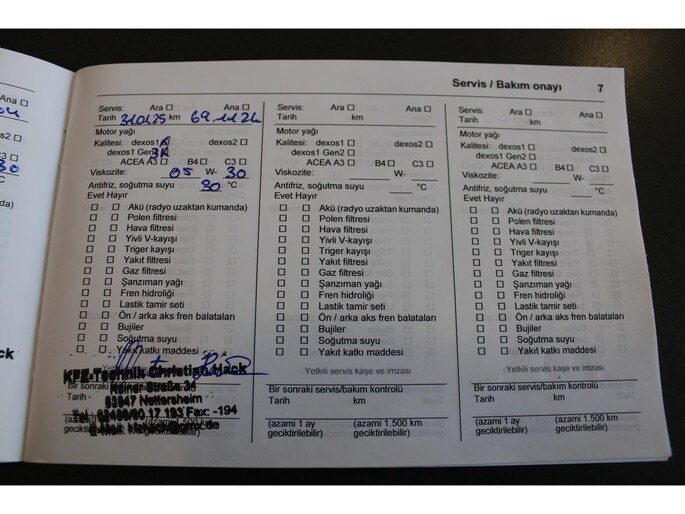 Servis / Bakım onayı 7
Servis: Ara ☐ Ana ☐
Tarih km
Motor yağı
Kalitesi: dexos1 dexos2 ☐
dexos1 Gen2
ACEA A3 ☐ B4 ☐ C3 ☐
Viskozite: 05 W- 30
Antifriz, soğutma suyu 30 °C
Evet Hayır
☐ ☐ Akü (radyo uzaktan kumanda)
☐ ☐ Polen filtresi
☐ ☐ Hava filtresi
☐ ☐ Yivli V-kayışı
☐ ☐ Triger kayışı
☐ ☐ Yakıt filtresi
☐ ☐ Gaz filtresi
☐ ☐ Şanzıman yağı
☐ ☐ Fren hidroliği
☐ ☐ Lastik tamir seti
☐ ☐ Ön / arka aks fren balataları
☐ ☐ Bujiler
☐ ☐ Soğutma suyu
☐ ☐ Yakıt katkı maddesi
KFZ-Technik Christian Hack
Bir sonraki
53947 Nettersheim
Fax: -194
(azami 1.500 km
geciktirilebilir)
Servis: Ara ☐ Ana ☐
Tarih km
Motor yağı
Kalitesi: dexos1 ☐ dexos2 ☐
dexos1 Gen2 ☐
ACEA A3 ☐ B4 ☐ C3 ☐
Viskozite: W-
Antifriz, soğutma suyu °C
Evet Hayır
☐ ☐ Akü (radyo uzaktan kumanda)
☐ ☐ Polen filtresi
☐ ☐ Hava filtresi
☐ ☐ Yivli V-kayışı
☐ ☐ Triger kayışı
☐ ☐ Yakıt filtresi
☐ ☐ Gaz filtresi
☐ ☐ Şanzıman yağı
☐ ☐ Fren hidroliği
☐ ☐ Lastik tamir seti
☐ ☐ Ön / arka aks fren balataları
☐ ☐ Bujiler
☐ ☐ Soğutma suyu
☐ ☐ Yakıt katkı maddesi
Yetkili servis kaşe ve imzası
Bir sonraki servis/bakım kontrolü
Tarih KM
(azami 1 ay (azami 1.500 km
geciktirilebilir) geciktirilebilir)
Servis: Ara ☐ Ana ☐
Tarih km
Motor yağı
Kalitesi: dexos1 ☐ dexos2 ☐
dexos1 Gen2 ☐
ACEA A3 ☐ B4 ☐ C3 ☐
Viskozite: W-
Antifriz, soğutma suyu °C
Evet Hayır
☐ ☐ Akü (radyo uzaktan kumanda)
☐ ☐ Polen filtresi
☐ ☐ Hava filtresi
☐ ☐ Yivli V-kayışı
☐ ☐ Triger kayışı
☐ ☐ Yakıt filtresi
☐ ☐ Gaz filtresi
☐ ☐ Şanzıman yağı
☐ ☐ Fren hidroliği
☐ ☐ Lastik tamir seti
☐ ☐ Ön / arka aks fren balataları
☐ ☐ Bujiler
☐ ☐ Soğutma suyu
☐ ☐ Yakıt katkı maddesi
Yetkili servis kaşe ve imzası
Bir sonraki servis/bakım kontrolü
Tarih KM
(azami 1 ay (azami 1.500 km
geciktirilebilir) geciktirilebilir)